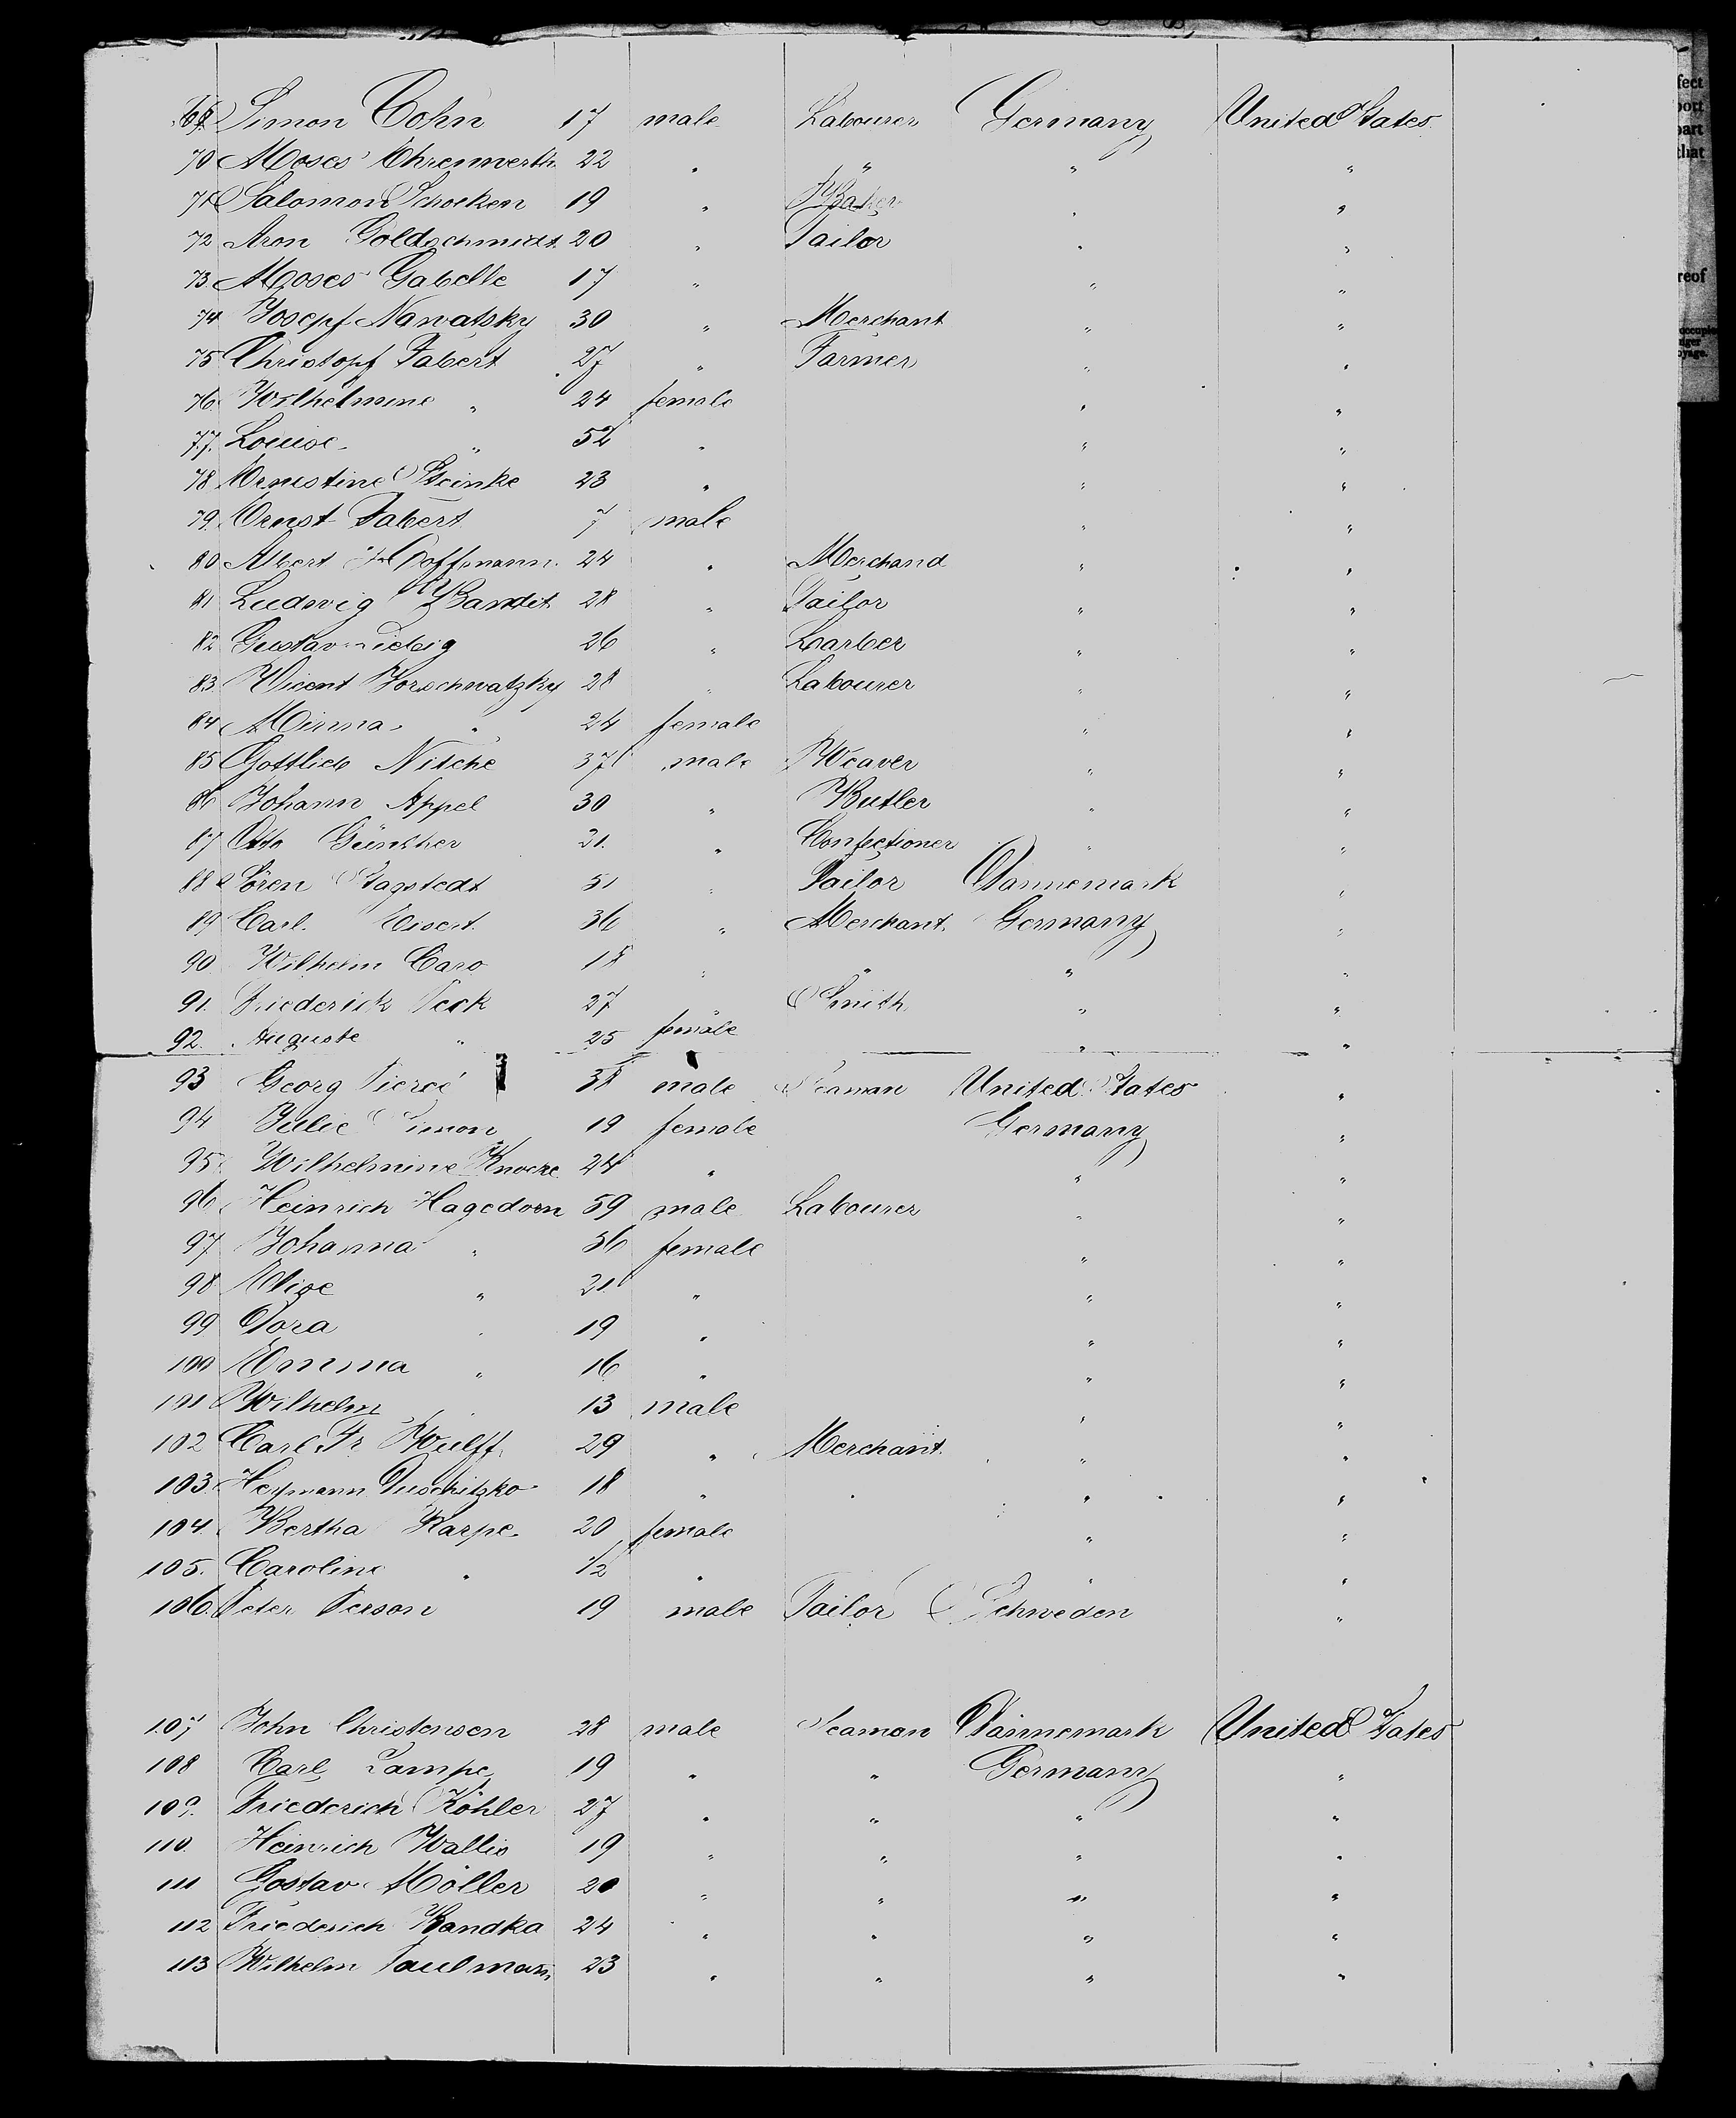 69 Simon Cohn 17 male Labourer Germany United States
70 Moses Ehrenwerth 22 " " " "
71 Salomon Schocken 19 " Baker " "
72 Aron Goldschmidt 20 " Tailor " "
73 Moses Gabelle 17 " " "
74 Josepf Nawatsky 30 " Merchant " "
75 Christopf Fabert 27 " Farmer " "
76 Wilhelmine " 24 female " "
77. Louise " 52 " " "
78 Ernestine Steinke 23 " " "
79. Ernst Fabert 7 male " "
80 Albert Hoffmann 24 " Merchand " "
81 Ludwig Bandit 28 " Tailor " "
82 Gustav 26 " Barber " "
83 Vicent Jorschwatzky 28 " Labourer " "
84 Minna " 24 female " "
85 Gottlieb Nitche 37 male Weaver " "
86 Johann Appel 30 " Butler " "
87 Otto Günther 21. " Confectioner " "
88 Sören Stagstedt 51 " Tailor Dannemark "
89 Carl Eisert 36 " Merchant Germany "
90. Wilhelm Caro 18 " " " "
91. Friederick Peck 27 " Smith " "
92. Auguste " 25 female " "
93 Georg Pierce 38 male Seaman United States "
94 Julie Simon 19 female Germany "
95 Wilhelmine Knocke 24 " " "
96 Heinrich Hagedorn 59 male Labourer " "
97 Johanna " 56 female " "
98 Elise " 21. " " "
99 Dora " 19 " " "
100 Emma " 16 " " "
101 Wilhelm 13 male " "
102 Carl Fr Wulff 29 " Merchant " "
103. Heymann Duschitzko 18 " " "
104. Bertha Karpe 20 female " "
105. Caroline " 1/2 " " "
106. Peter Person 19 male Tailor Schweden "
107 John Christensen 28 male Seaman Dannemark United States
108 Carl Lampe 19 " " Germany "
109. Friederich Köhler 27 " " " "
110. Heinrich Wallis 19 " " " "
111 Gostav Möller 20 " " " "
112 Friederich Kandka 24 " " " "
113 Wilhelm Paulmann 23 " " " "
fect
port
part
that
reof